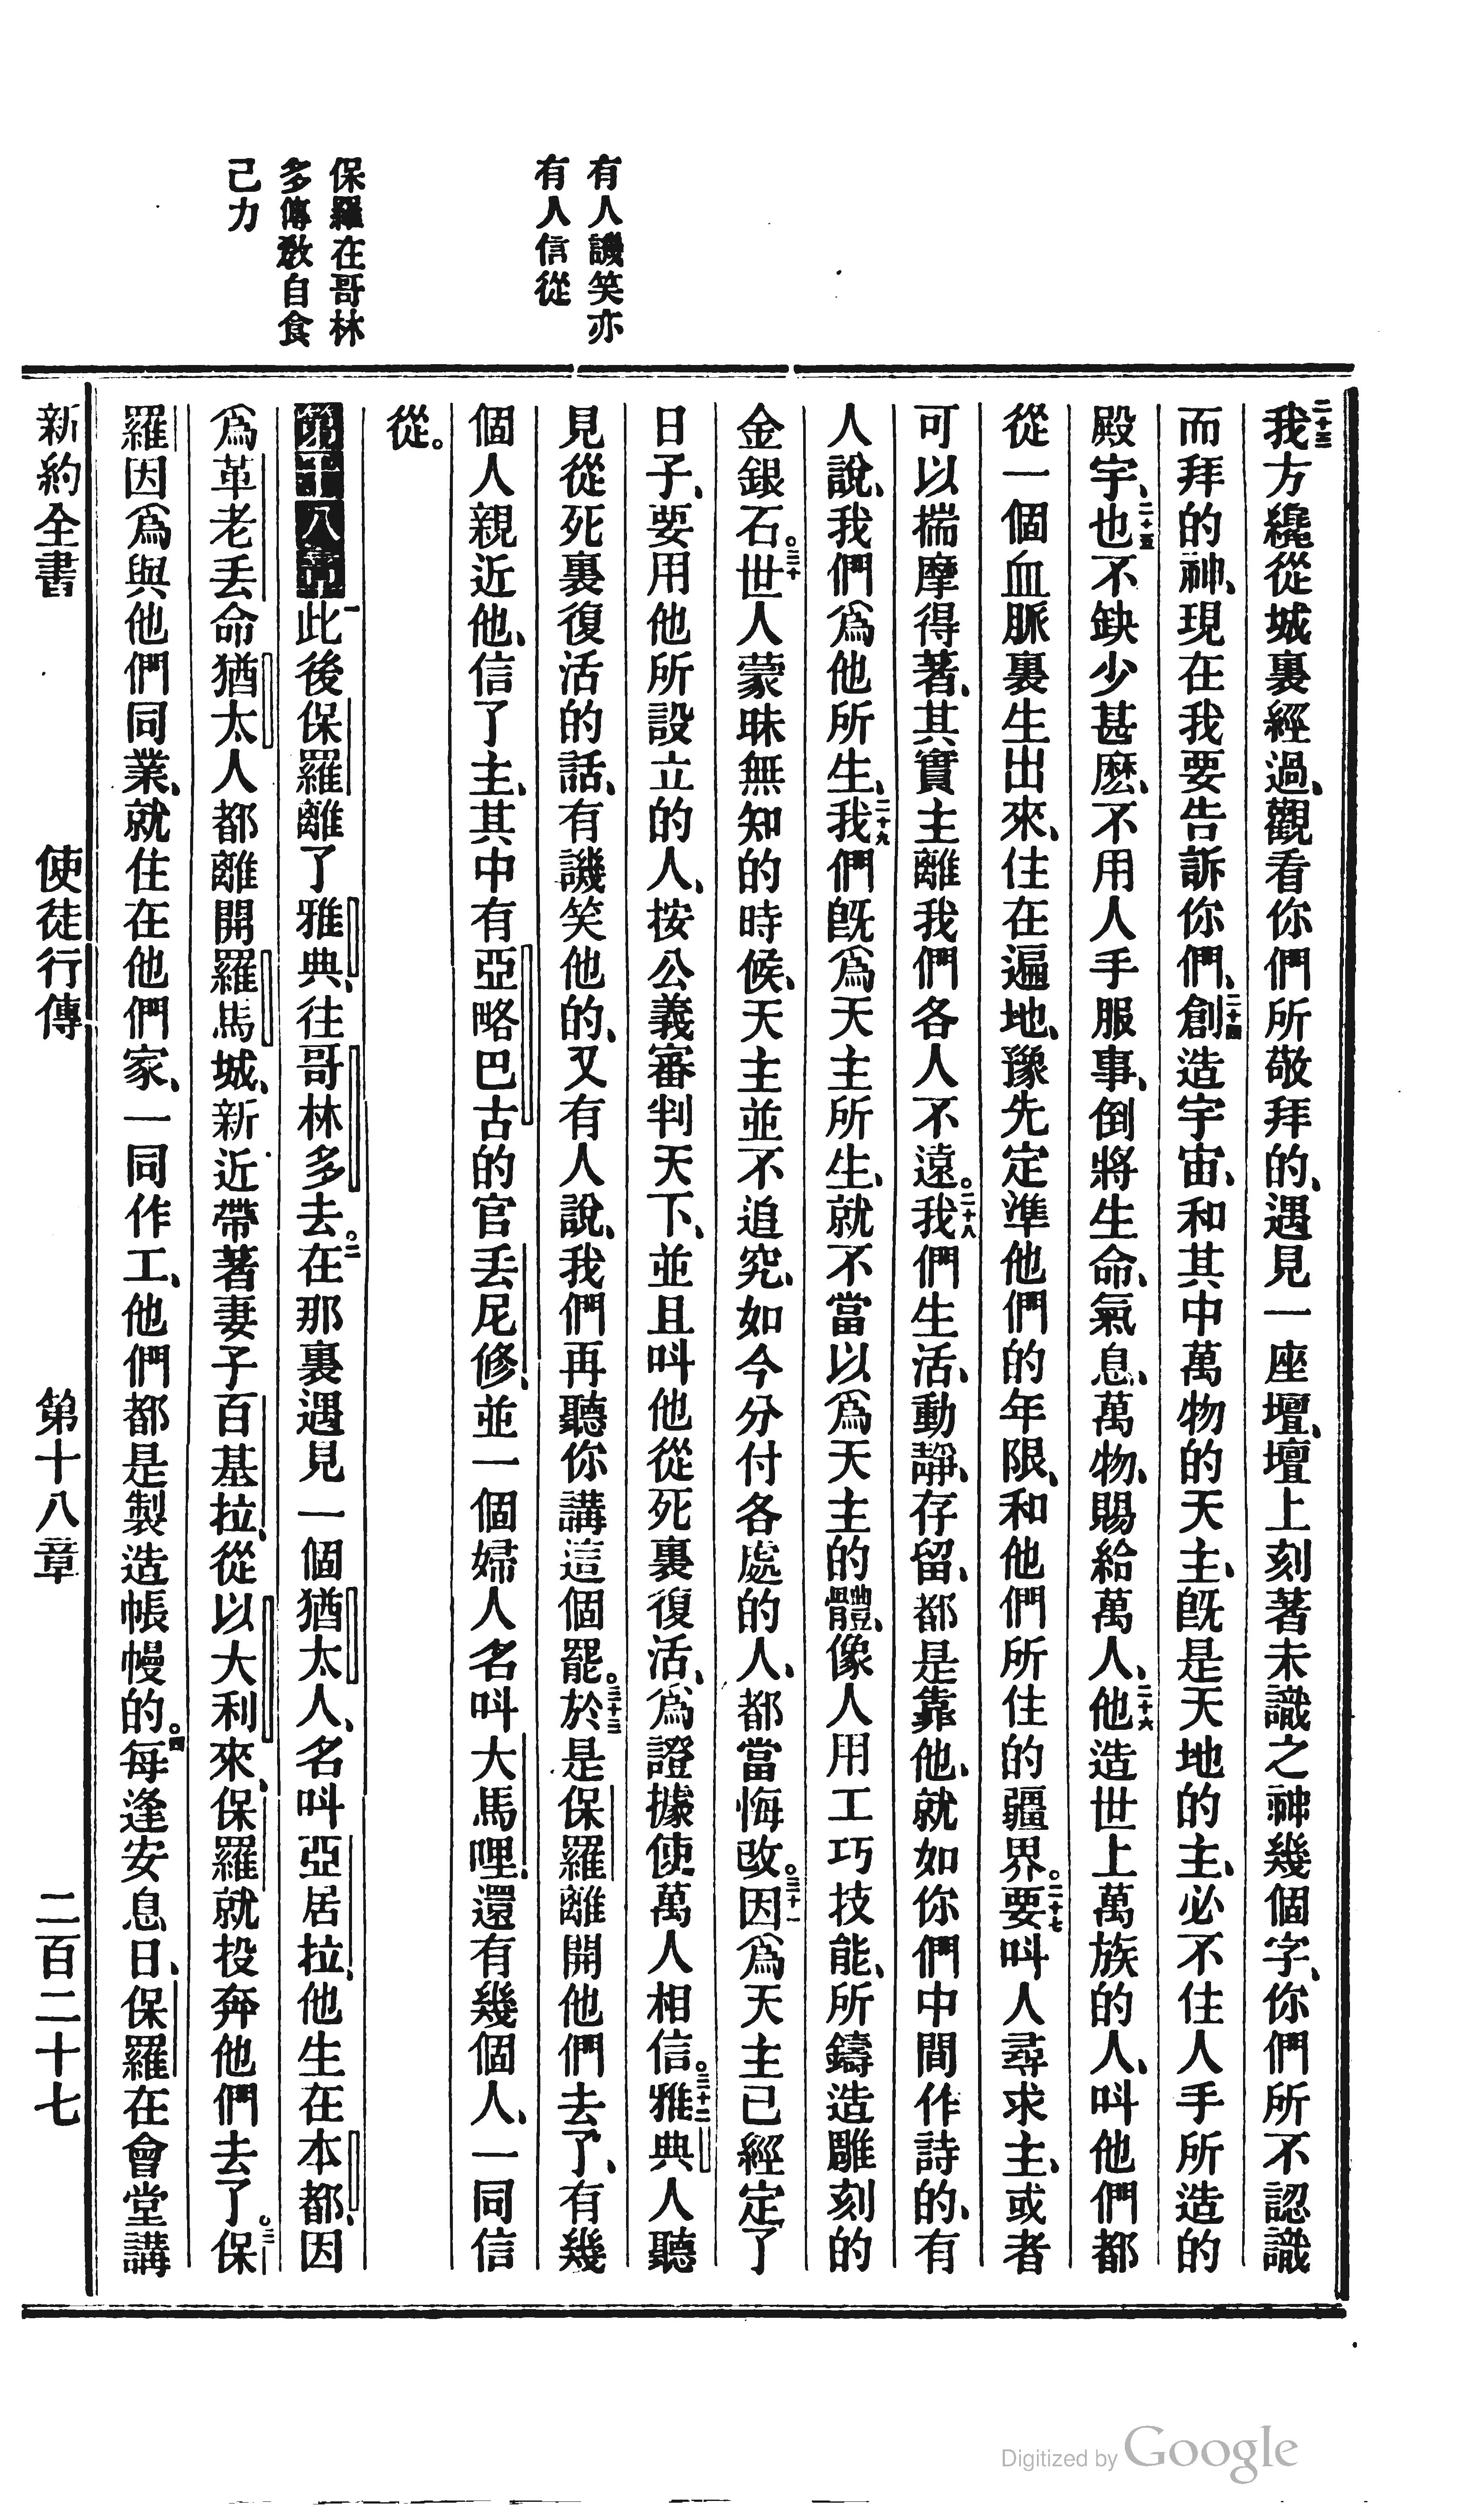 有人譏笑亦
有人信從
保羅在哥林
多傳教自食
己力
二十三我方纔從城裏經過、觀看你們所敬拜的、遇見一座壇、壇上刻著未識之神幾個字、你們所不認識
而拜的神、現在我要告訴你們、二十四創造宇宙、和其中萬物的天主、旣是天地的主、必不住人手所造的
殿宇、二十五也不缺少甚麼、不用人手服事、倒將生命、氣息、萬物、賜給萬人、二十六他造世上萬族的人、叫他們都
從一個血脈裏生出來、住在遍地、豫先定準他們的年限、和他們所住的疆界。二十七要叫人尋求主、或者
可以揣摩得著、其實主離我們各人不遠。二十八我們生活、動靜、存留、都是靠他、就如你們中間作詩的、有
人說、我們爲他所生、二十九我們旣爲天主所生、就不當以爲天主的體、像人用工巧技能、所鑄造雕刻的
金銀石。三十世人蒙昧無知的時候、天主並不追究、如今分付各處的人、都當悔改。三十一因爲天主已經定了
日子、要用他所設立的人、按公義審判天下、並且叫他從死裏復活、爲證據使萬人相信。三十二雅典人聽
見從死裏復活的話、有譏笑他的、又有人說、我們再聽你講這個罷。三十三於是保羅離開他們去了、有幾
個人親近他、信了主、其中有亞略巴古的官丟尼修、並一個婦人名叫大馬哩、還有幾個人、一同信
從。
第十八章一此後保羅離了雅典、往哥林多去。二在那裏遇見一個猶太人、名叫亞居拉、他生在本都、因
爲革老丟命猶太人都離開羅馬城、新近帶著妻子百基拉、從以大利來、保羅就投奔他們去了。三保
羅因爲與他們同業、就住在他們家、一同作工、他們都是製造帳幔的。四每逢安息日、保羅在會堂講
新約全書 使徒行傳 第十八章 二百二十七
Digitized by Google